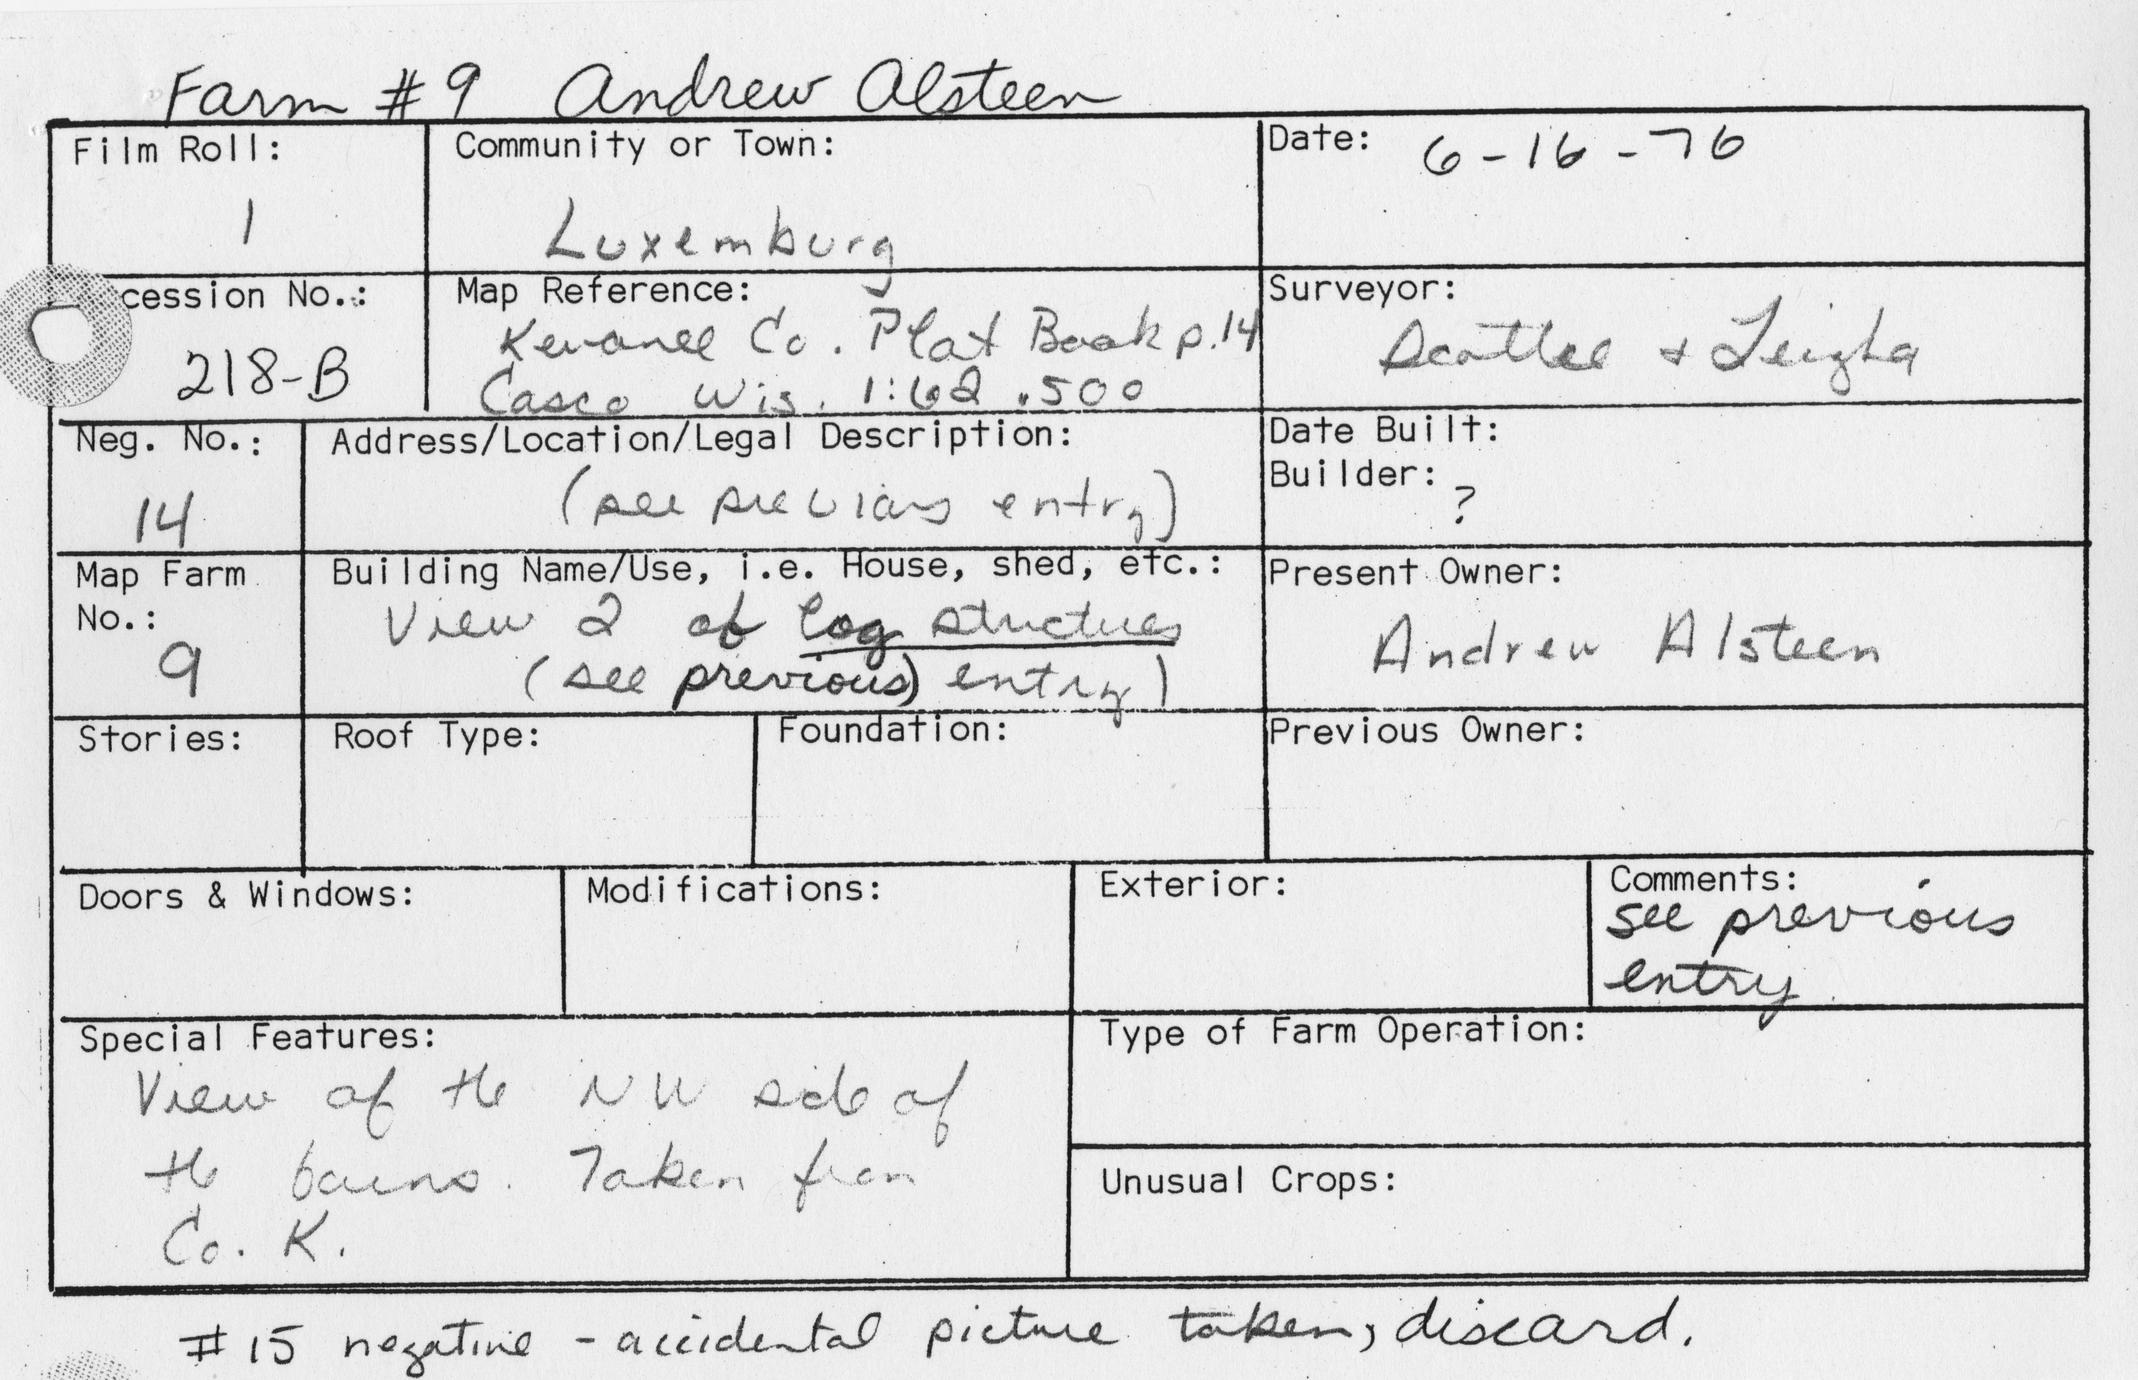 Farm #9 Andrew Alsteen
Film Roll:
1
Community or Town:
Luxemburg
Date: 6-16-76
cession No.:
218-B
Map Reference:
Kewanee Co. Plat Book p.14
Casco Wis. 1:62.500
Surveyor:
& Leigha
Neg. No.:
14
Address/Location/Legal Description:
(see previous entry)
Date Built:
Builder: ?
Map Farm
No.:
9
Building Name/Use, i.e. House, shed, etc.:
View 2 of log structures
(see previous) entry)
Present Owner:
Andrew Alsteen
Stories:
Roof Type:
Foundation:
Previous Owner:
Doors & Windows:
Modifications:
Exterior:
Comments:
see previous
entry
Special Features:
View of the NW side of
the barns. Taken from
Co. K.
Type of Farm Operation:
Unusual Crops:
#15 negative - accidental picture taken, discard.